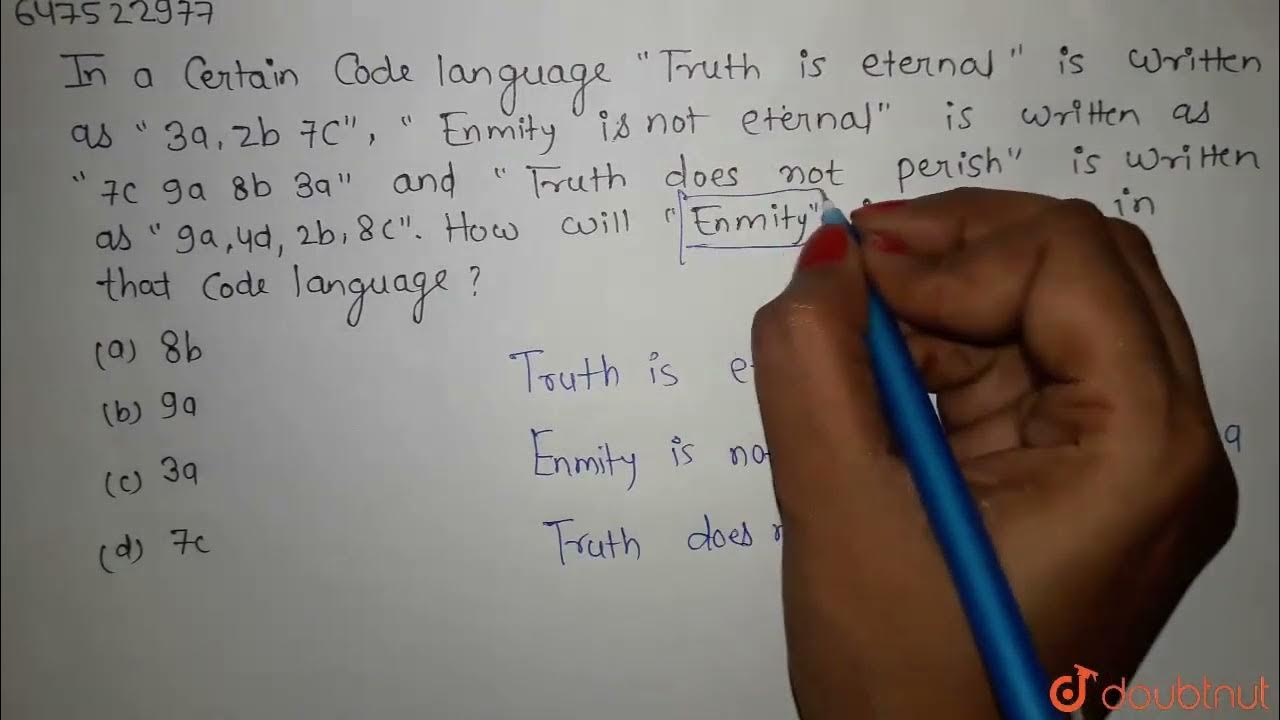 647522977
In a Certain Code language "Truth is eternal" is written
as "3a, 2b 7C", "Enmity is not eternal" is written as
"7c 9a 8b 3a" and "Truth does not perish" is written
as "9a, 4d, 2b, 8c". How will "Enmity" in
that Code language?
(a) 8b
(b) 9a
(c) 3a
(d) 7c
Truth is
Enmity is
Truth does
doubtnut